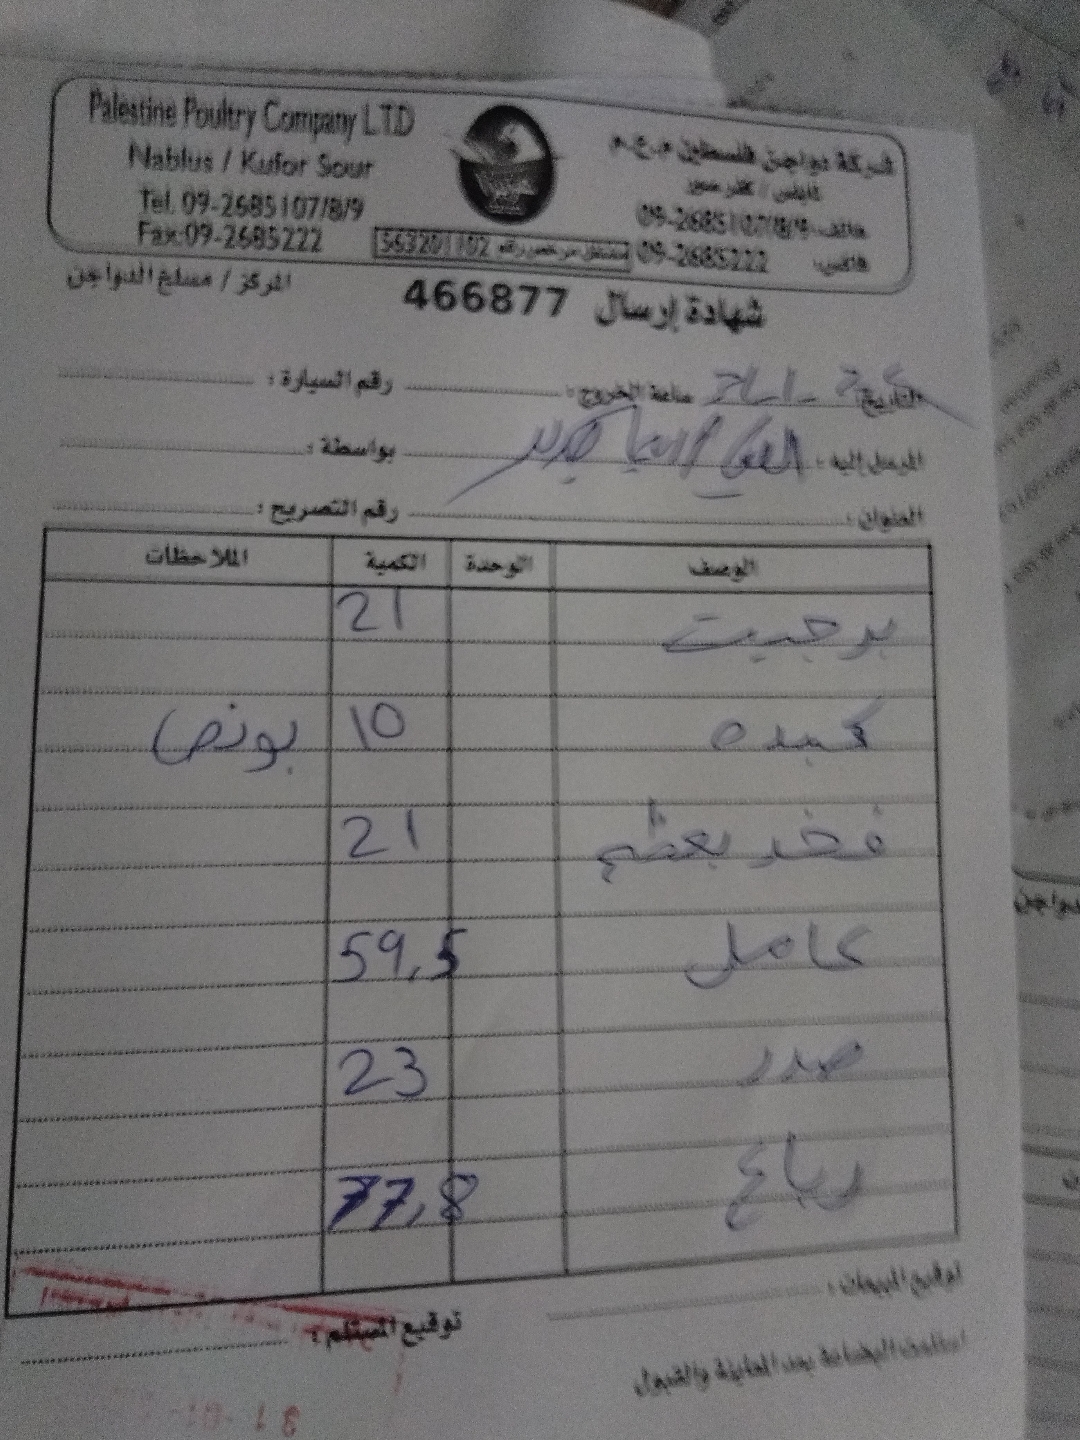 Palestine Poultry Company L.T.D
Nablus / Kufor Sour
Tel. 09-2685107/8/9
Fax:09-2685222
شركة دواجن فلسطين م.ع.م
نابلس / كفر صور
هاتف: 09-2685107/8/9
فاكس: 09-2685222
مشتغل مرخص رقم 563201102
المركز / مسلخ الدواجن
شهادة إرسال 466877
التاريخ: ساعة الخروج: رقم السيارة:
المرسل إليه: بواسطة:
العنوان: رقم التصريح:
الوصف الوحدة الكمية الملاحظات
برجيت 21
كبده 10 بونص
فخذ بعظم 21
كامل 59,5
صدر 23
رباع 77,8
توقيع المبيعات:
توقيع المستلم:
استلمت البضاعة بعد المعاينة والقبول